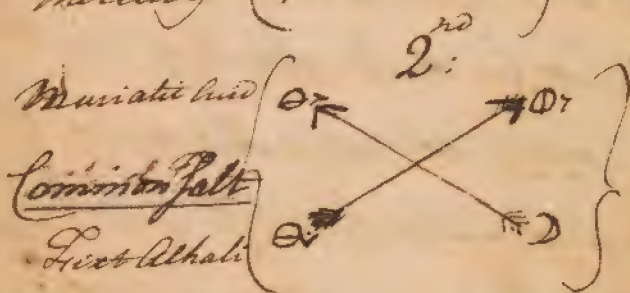 Mercury
2.nd
Muriatic Acid
Common Salt
Fixt Alkali